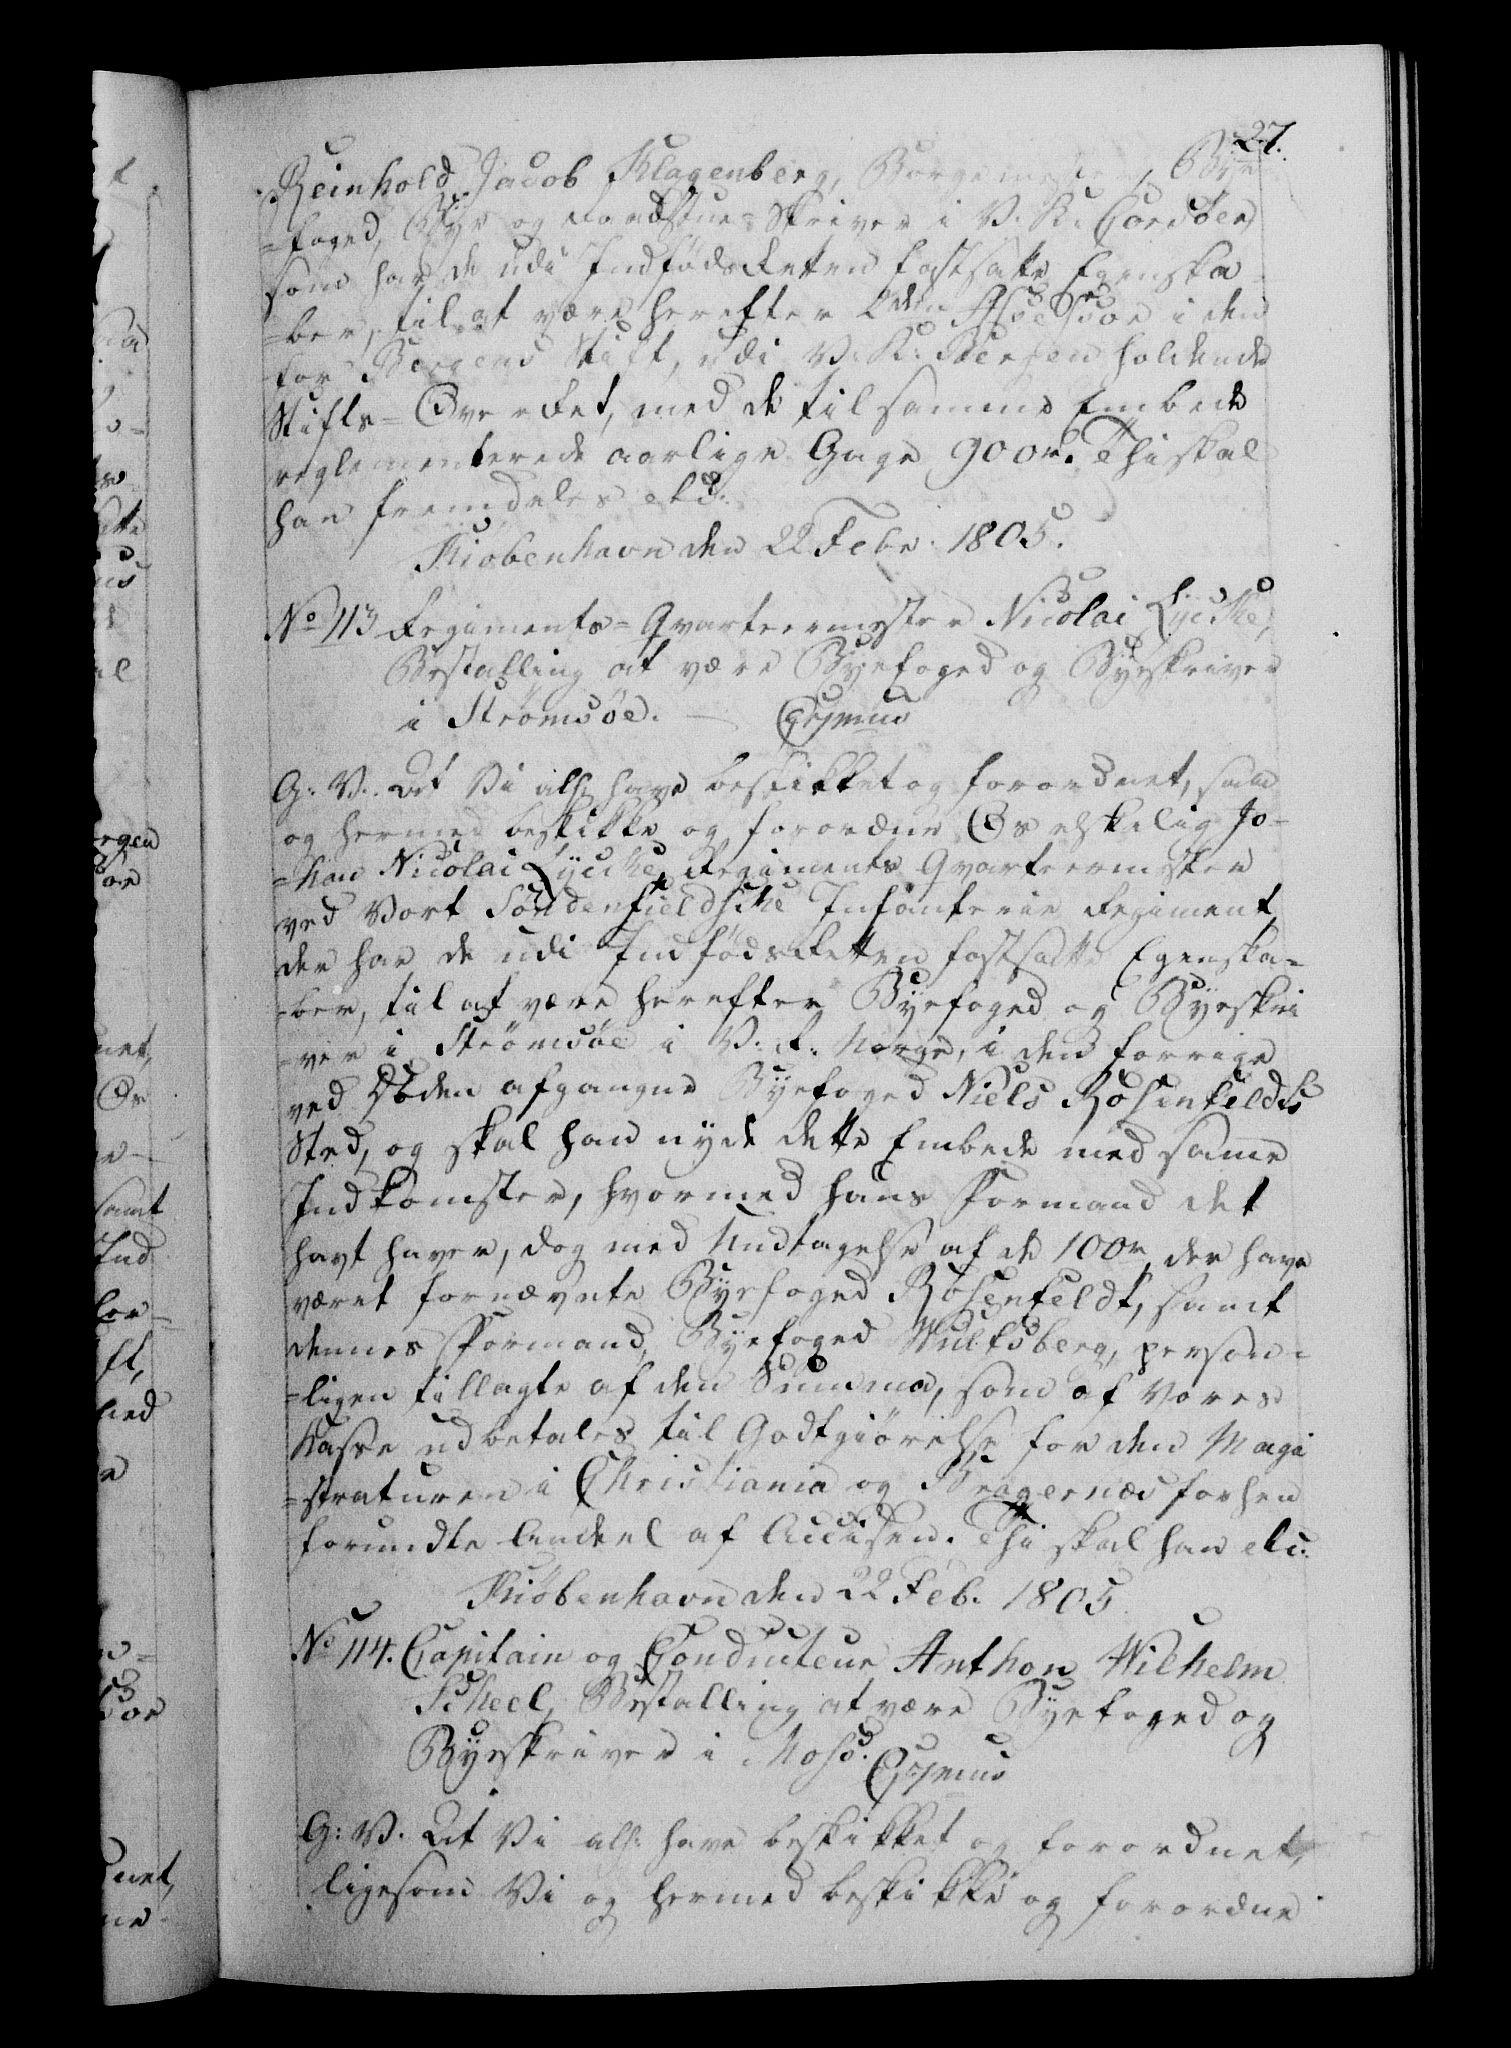 27.
Reinhold Jacob Klagenberg, Borgemester, Bye
=foged, Bye og Raadstue-Skriver i V. K. Corsöer,
som har de udi IndfødsRetten fastsatte Egenska
=ber, til at være herefter 2den Assessor i den
for Bergens Stift, udi V. K. Bergen holdende
Stifts=OverRet, med de til samme Embede
reglementerede aarlige Gage 900r. Thi skal
han fremdeles etc.
Kiøbenhavn den 22 Febr. 1805.
No 113 Regiments=Qvarteermester Nicolai Lycke,
Bestalling at være Byefoged og Byeskriver
i Strømsöe. Expmus
G: V. At Vi alf: have beskikket og forordnet, saa
og hermed beskikke og forordne Os elskelig Jo-
=han Nicolai Lycke, Regiments Qvarteermester
ved Vort Söndenfieldske Infanterie Regiment,
der har de udi IndfødsRetten fastsatte Egenska=
=ber, til at være herefter Byefoged og Byeskri
=ver i Strömsöe i V. R. Norge, i den forrige
ved Døden afgangne Byefoged Niels Rosenfeldts
Sted, og skal han nyde dette Embede med samme
Indkomster, hvormed hans Formand det
havt haver, dog med Undtagelse af de 100r, der have
været fornævnte Byefoged Rosenfeldt, samt
dennes Formand, Byefoged Wulfsberg, person=
=ligen tillagte af den Summa, som af Vores
Kasse udbetales til Godtgiørelse for den Magi
=straturen i Christiania og Bragernæs forhen
forundte Andeel af Accisen. Thi skal han etc:
Kiøbenhavn den 22 Feb. 1805
No 114. Capitain og Conducteur Anthon Wilhelm
Scheel, Bestalling at være Byefoged og
Byeskriver i Moss. Expmus
G: V. At Vi alf: have beskikket og forordnet,
ligesom Vi og hermed beskikke og forordne